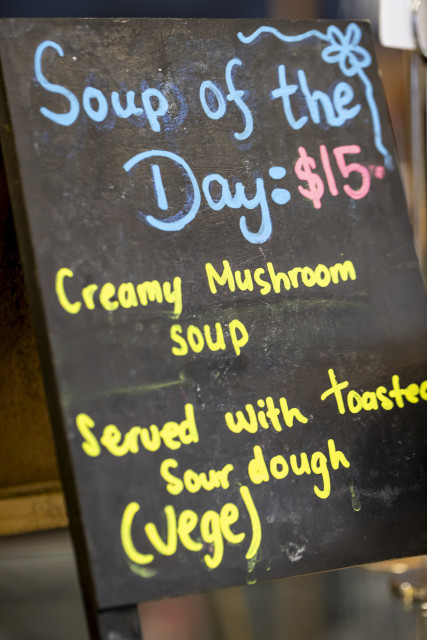 Soup of the
Day: $15
Creamy Mushroom
soup
Served with toasted
Sour dough
(vege)